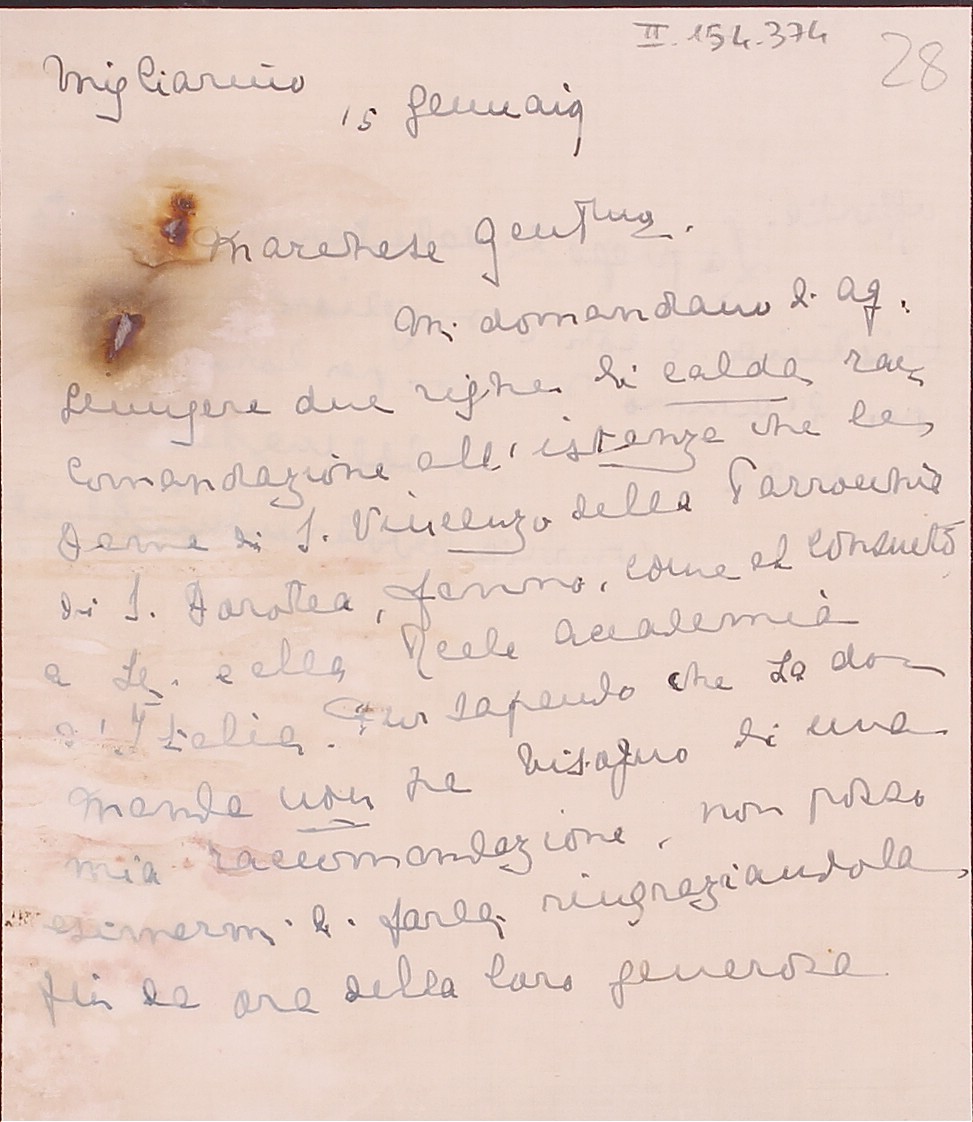 II.154.374
28
Migliarino
15 Gennaio
Marchese Gentmo.
Mi domandano di ag.
giungere due righe di calda rac
comandazione all'istanza che le
Dame di S. Vincenzo della Parrocchia
di S. Dorotea, fanno, come al consueto
a Lei. e alla Reale Accademia
d'Italia. Pur sapendo che la do
manda non ha bisogno di una
mia raccomandazione, non posso
esimermi di farla, ringraziandola
fin da ora della loro generosa